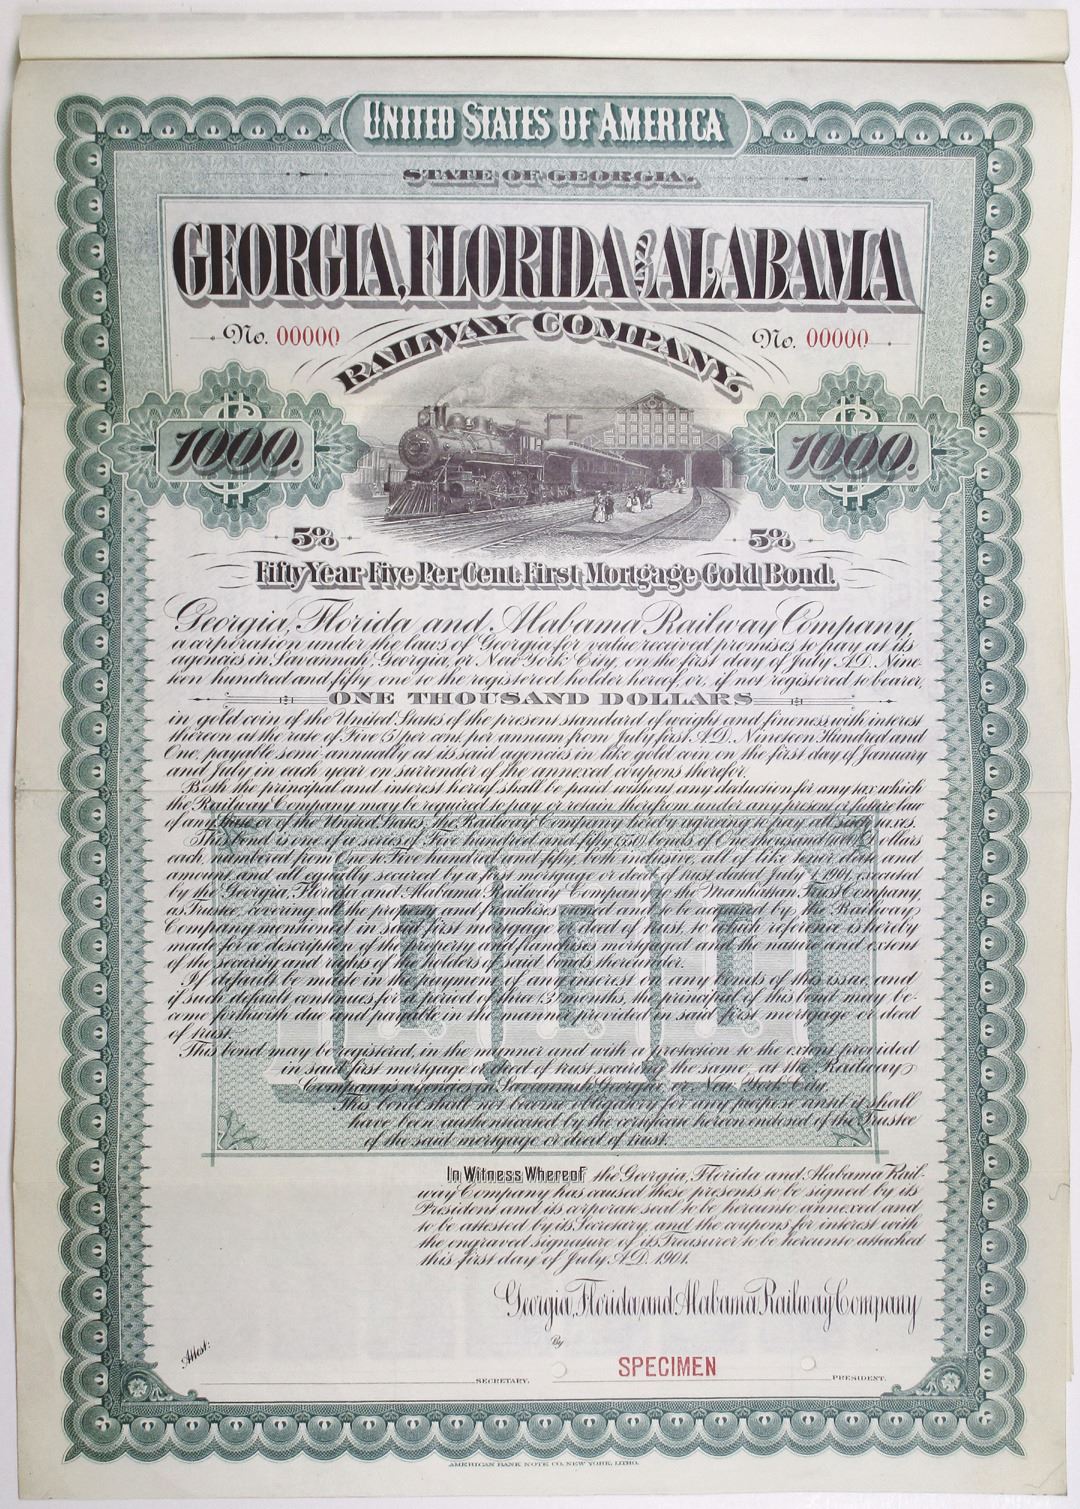 UNITED STATES OF AMERICA
STATE OF GEORGIA.
GEORGIA, FLORIDA AND ALABAMA
No. 00000
No. 00000
RAILWAY COMPANY.
1000.
1000.
5%
5%
Fifty Year Five Per Cent. First Mortgage Gold Bond.
Georgia, Florida and Alabama Railway Company,
a corporation under the laws of Georgia for value received promises to pay at its
agencies in Savannah, Georgia, or New York City, on the first day of July A.D. Nine-
teen hundred and fifty one to the registered holder hereof, or, if not registered to bearer,
ONE THOUSAND DOLLARS
in gold coin of the United States of the present standard of weight and fineness, with interest
thereon at the rate of Five (5) per cent. per annum from July first, A.D. Nineteen Hundred and
One, payable semi-annually at its said agencies in like gold coin on the first day of January
and July in each year on surrender of the annexed coupons therefor.
Both the principal and interest hereof shall be paid without any deduction for any tax which
the Railway Company may be required to pay or retain therefrom under any present or future law
of any State or of the United States, the Railway Company hereby agreeing to pay all such taxes.
This bond is one of a series of Five hundred and fifty (550) bonds of One thousand (1000) Dollars
each, numbered from One to Five hundred and fifty, both inclusive, all of like tenor, date and
amount and all equally secured by a first mortgage or deed of trust dated July 1, 1901, executed
by the Georgia, Florida and Alabama Railway Company to the Manhattan Trust Company,
as Trustee, covering all the property and franchises owned and to be acquired by the Railway
Company mentioned in said first mortgage or deed of trust, to which reference is hereby
made for a description of the property and franchises mortgaged and the nature and extent
of the security and rights of the holders of said bonds thereunder.
If default be made in the payment of any interest on any bonds of this issue, and
if such default continues for a period of three (3) months, the principal of this bond may be-
come forthwith due and payable in the manner provided in said first mortgage or deed
of trust.
This bond may be registered, in the manner and with a protection to the extent provided
in said first mortgage or deed of trust securing the same, at the Railway
Company's agencies in Savannah, Georgia, or New York City.
This bond shall not become obligatory for any purpose until it shall
have been authenticated by the certificate hereon endorsed of the Trustee
of the said mortgage or deed of trust.
In Witness Whereof the Georgia, Florida and Alabama Rail-
way Company has caused these presents to be signed by its
President and its corporate seal to be hereunto annexed and
to be attested by its Secretary, and the coupons for interest with
the engraved signature of its Treasurer to be hereunto attached
this first day of July A.D. 1901.
Georgia, Florida and Alabama Railway Company
By
Attest:
SPECIMEN
SECRETARY.
PRESIDENT.
AMERICAN BANK NOTE CO. NEW YORK, LITHO.